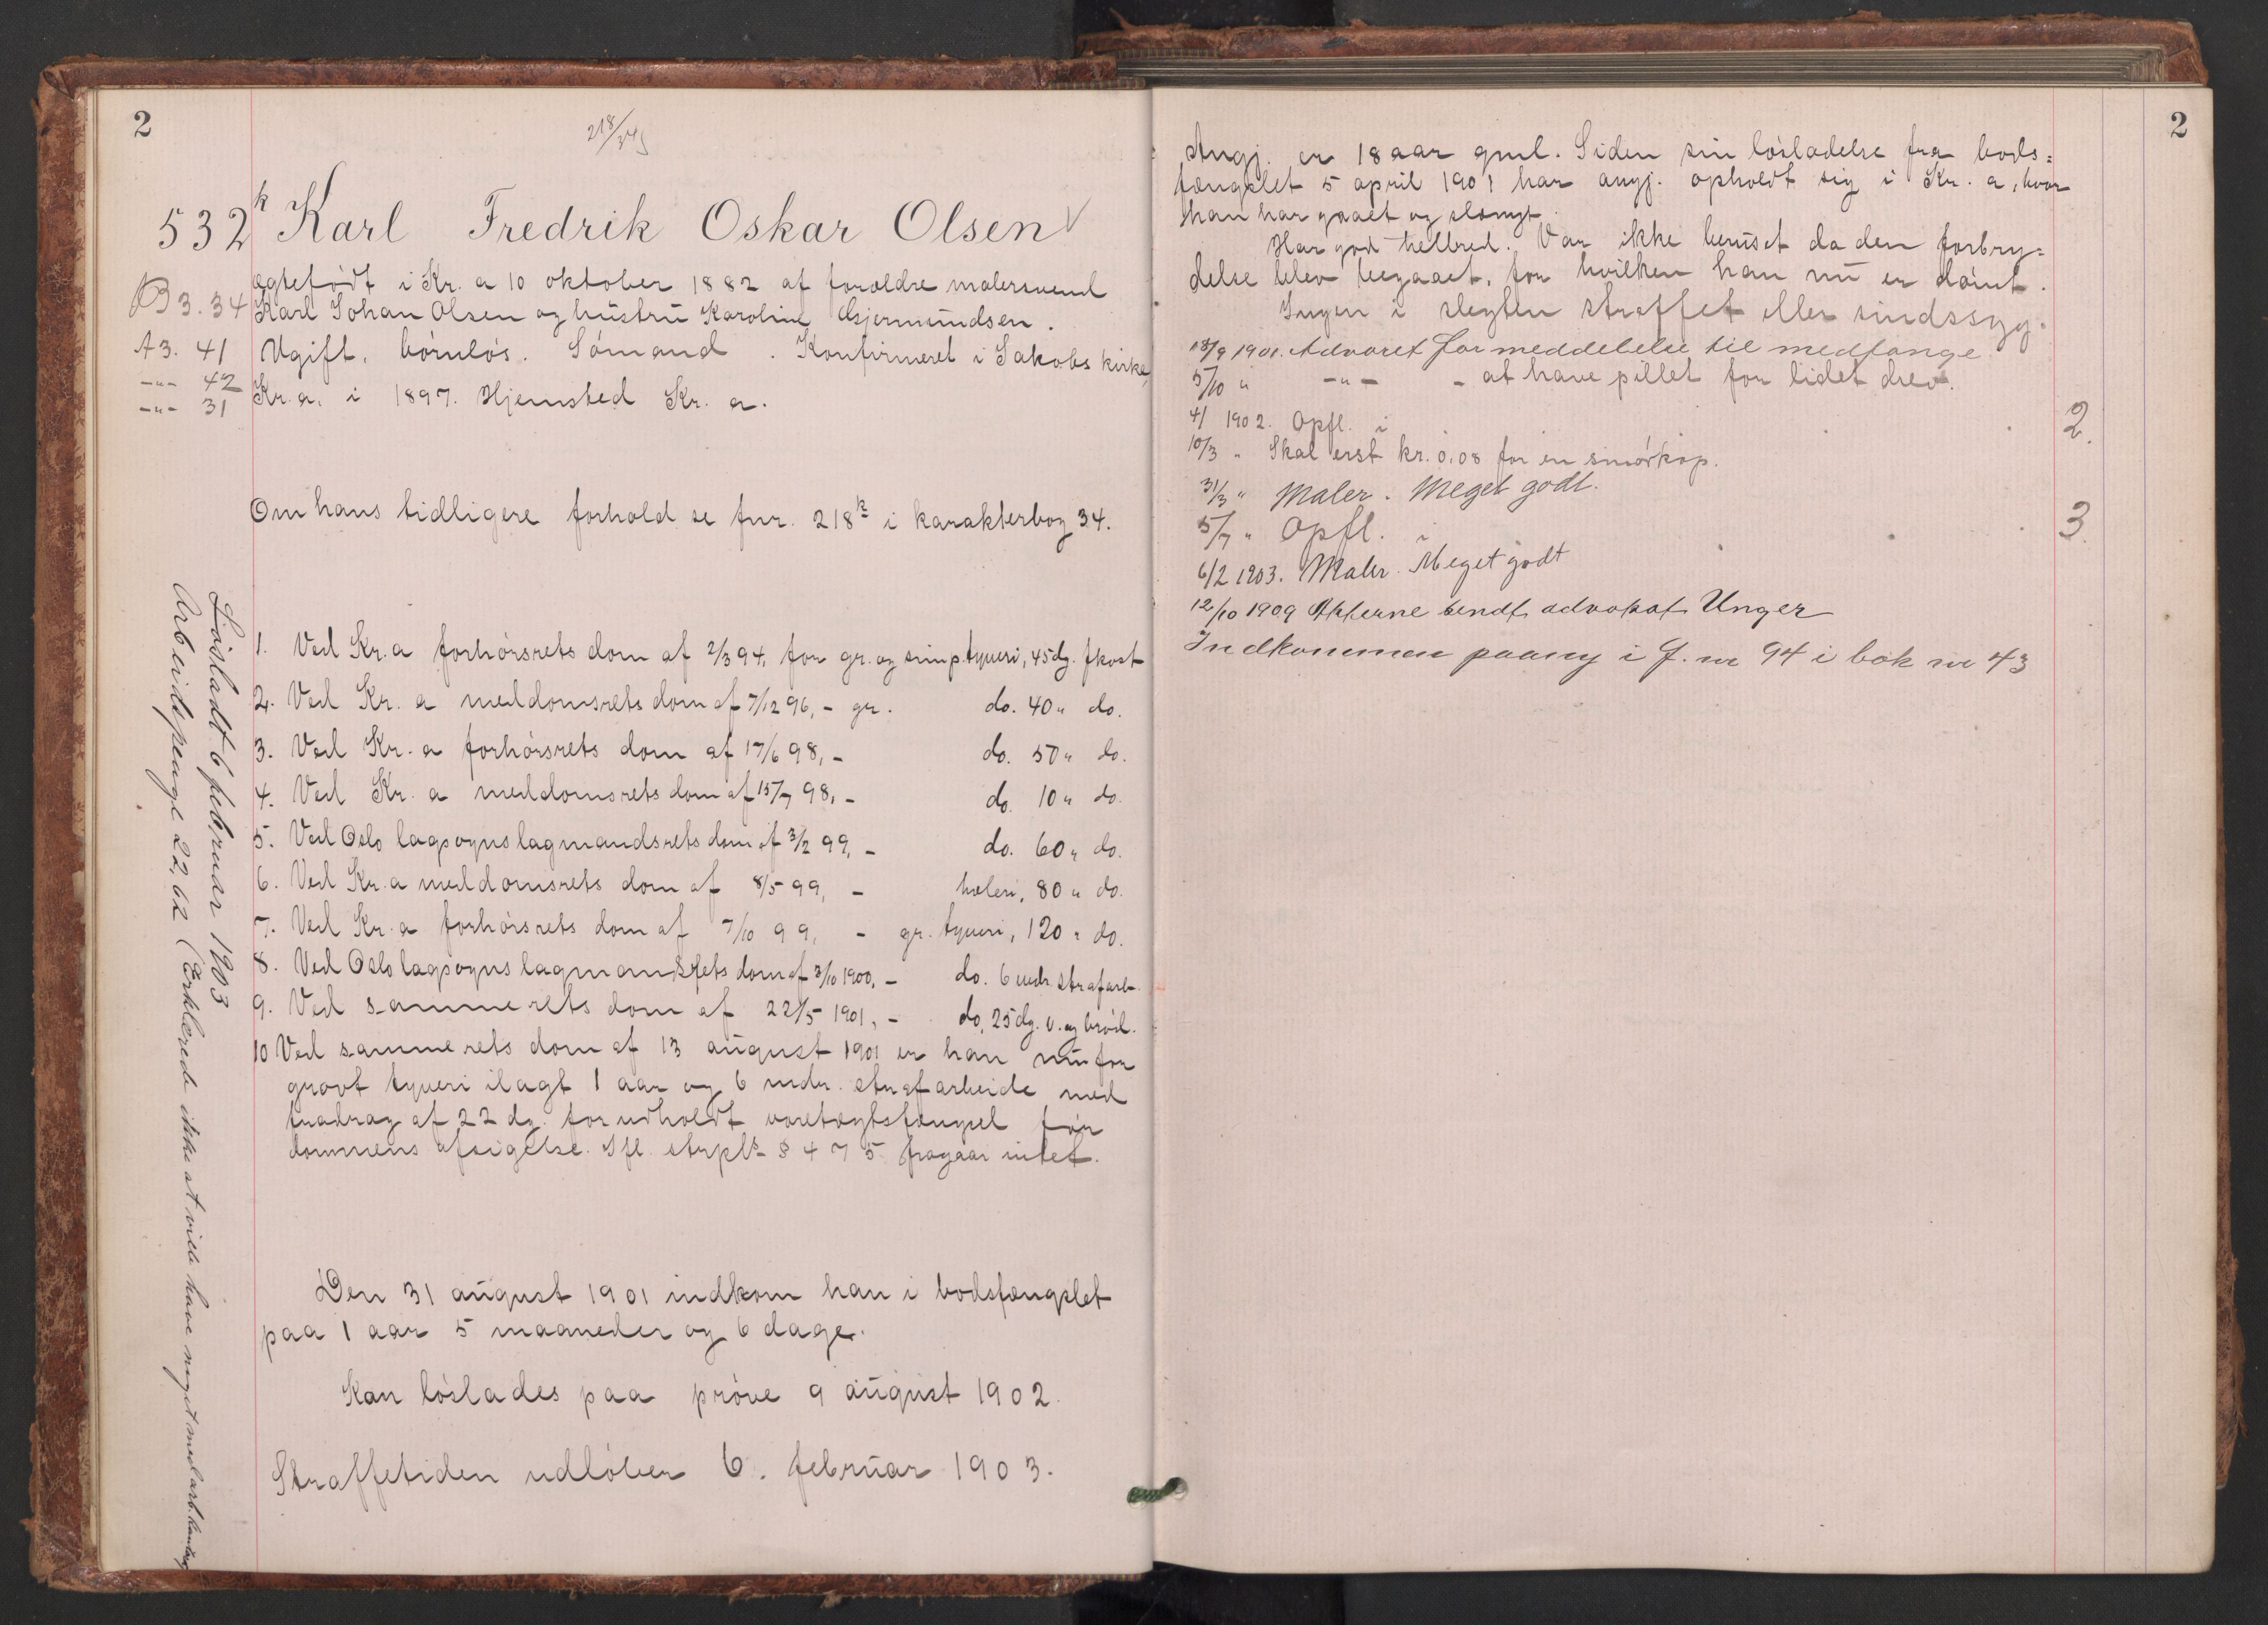 2
218/34
532k Karl Fredrik Oskar Olsen
ægtefødt i Kr.a 10 oktober 1882 af forældre malersvend
B 3. 34 Karl Johan Olsen og hustru Karoline Gjermundsen.
A 3. 41 Ugift, børnløs. Sømand. Konfirmeret i Jakobs kirke,
-"- 42 Kr.a. i 1897. Hjemsted Kr.a.
-"- 31
Om hans tidligere forhold se fnr. 218k i karakterbog 34.
1. Ved Kr.a forhørsrets dom af 2/3 94, for gr. og simp. tyveri, 45 dg. fkost
2. Ved Kr.a meddomsrets dom af 7/12 96, - gr. do. 40 " do.
3. Ved Kr.a forhørsrets dom af 17/6 98, - do. 50 " do.
4. Ved Kr.a meddomsrets dom af 15/7 98, - do. 10 " do.
5. Ved Oslo lagsogns lagmandsrets dom af 3/2 99, - do. 60 " do.
6. Ved Kr.a meddomsrets dom af 8/5 99, - hæleri, 80 " do.
7. Ved Kr.a forhørsrets dom af 7/10 99, - gr. tyveri, 120 " do.
8. Ved Oslo lagsogns lagmandsrets dom af 3/10 1900, - do. 6 mdr. strafarb.
9. Ved samme rets dom af 22/5 1901, - do, 25 dg. v. og brød.
10 Ved samme rets dom af 13 august 1901 er han nu for
grovt tyveri ilagt 1 aar og 6 mdr. strafarbeide med
fradrag af 22 dg. for udholdt varetægtsfængsel før
dommens afsigelse. Ifl. strpl. § 475 fragaar intet.
Den 31 august 1901 indkom han i bodsfængslet
paa 1 aar 5 maaneder og 6 dage.
Kan løslades paa prøve 9 august 1902.
Straffetiden udløber 6. februar 1903.
Løsladt 6 februar 1903
Arbeidspenge 22,62 (Erklærede ikke at ville have noget med arb.
2
Angj. er 18 aar gml. Siden sin løsladelse fra bods=
fængslet 5 april 1901 har angj. opholdt sig i Kr.a, hvor
han har gaaet og slængt.
Har god helbred. Var ikke beruset da den forbry=
delse blev begaaet, for hvilken han nu er dømt.
Ingen i slegten straffet eller sindssyg.
13/9 1901. Advaret for meddelelse til medfange
5/10 " -"- - at have pillet for lidet drev.
4/1 1902. Opfl. i 2.
10/3 " Skal erst kr. 0,08 for en smørkop.
31/3 " Maler. Meget godt.
5/7 " Opfl. i 3.
6/2 1903. Maler. Meget godt
12/10 1909 Akterne sendt advokat Unger
Indkommen paany i F. nr 94 i bok nr 43